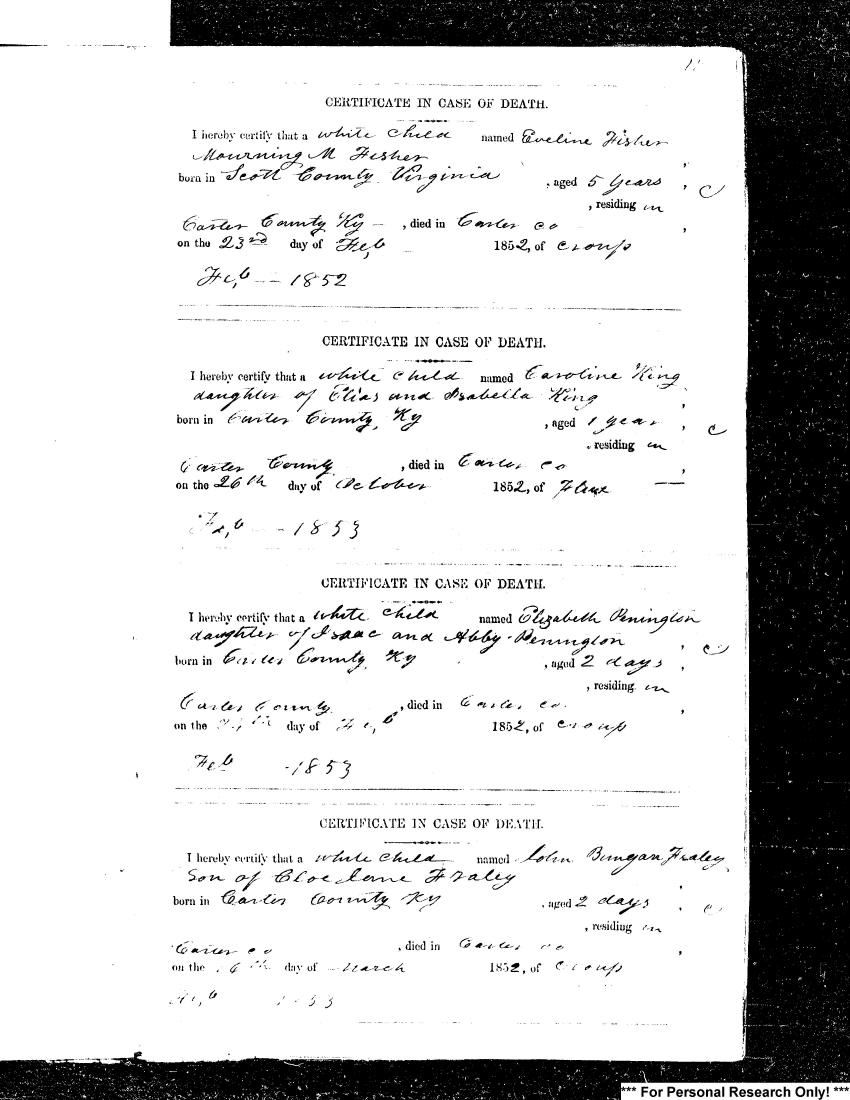 CERTIFICATE IN CASE OF DEATH.
I hereby certify that a white child named Eveline Fisher
Mourning M Fisher
born in Scott County Virginia , aged 5 years ,
, residing in
Carter County Ky — , died in Carter co ,
on the 23rd day of Feb 1852, of croup
Feb — 1852
CERTIFICATE IN CASE OF DEATH.
I hereby certify that a white child named Caroline King
daughter of Elias and Isabella King ,
born in Carter County, Ky , aged 1 year , c
, residing in
Carter County , died in Carter co ,
on the 26th day of October 1852, of Flux —
Feb — 1853
CERTIFICATE IN CASE OF DEATH.
I hereby certify that a white child named Elizabeth Penington
daughter of Isaac and Abby Penington ,
born in Carter County Ky , aged 2 days ,
, residing in
Carter County , died in Carter co. ,
on the day of Feb 1852, of croup
Feb - 1853
CERTIFICATE IN CASE OF DEATH.
I hereby certify that a white child named John Fraley
Son of Cloe Jane Fraley ,
born in Carter County Ky , aged 2 days ,
, residing in
Carter co , died in Carter co ,
on the day of March 1852, of Croup
Feb 1853
*** For Personal Research Only! ***